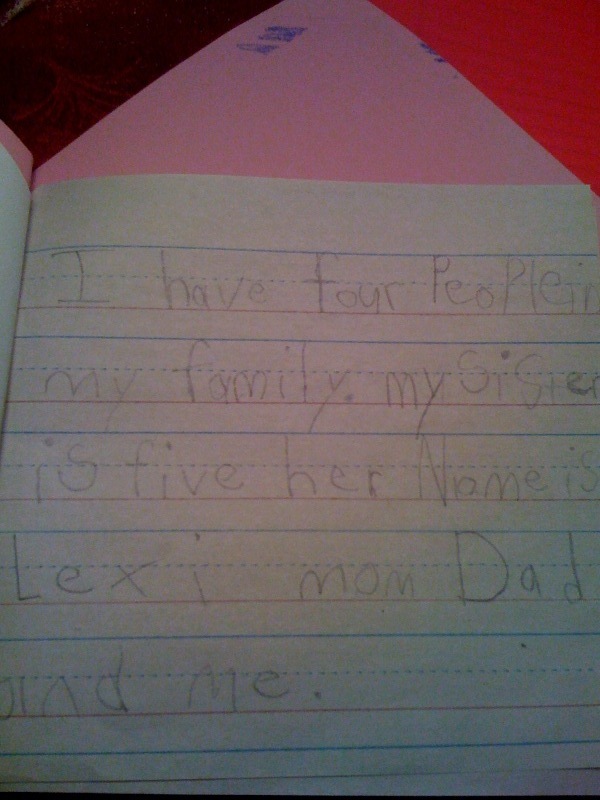 I have four PeoPlein
my family. my SiSter
is five her Name is
Lexi mom Dad
and me.